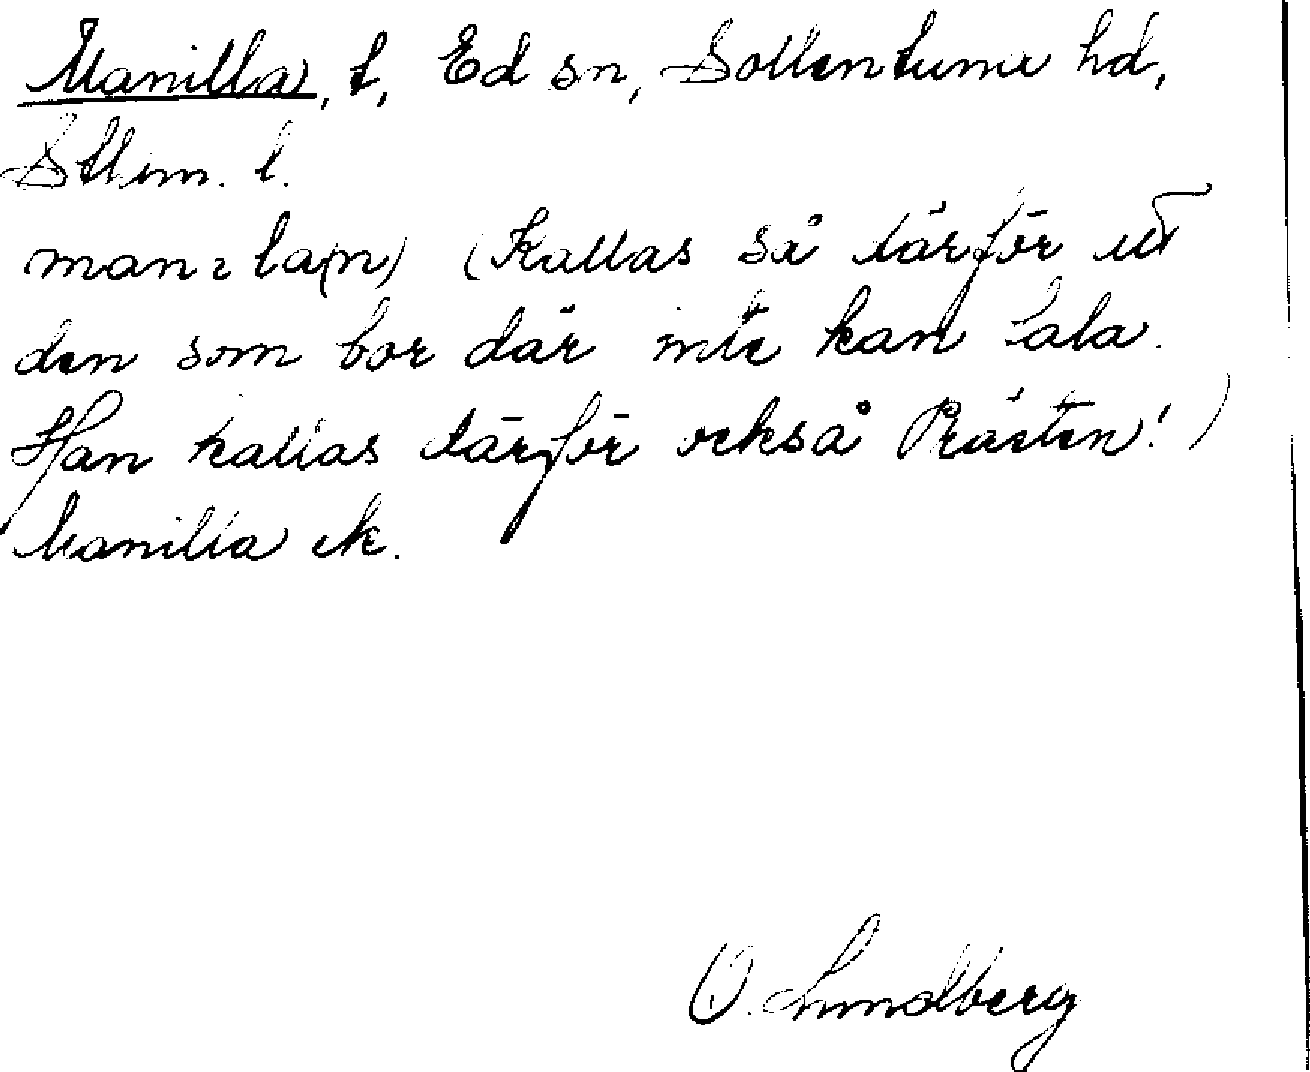 Manilla, t, Ed sn, Sollentuna hd,
Sthlm. l.
man2la(n) (Kallas så därför att
den som bor där inte kan tala.
Han kallas därför också Prästen!)
Manilla ek.
O. Lundberg